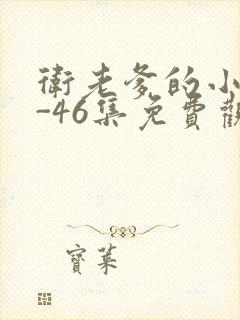 衛老爹的小
-46集免費觀
寶葉